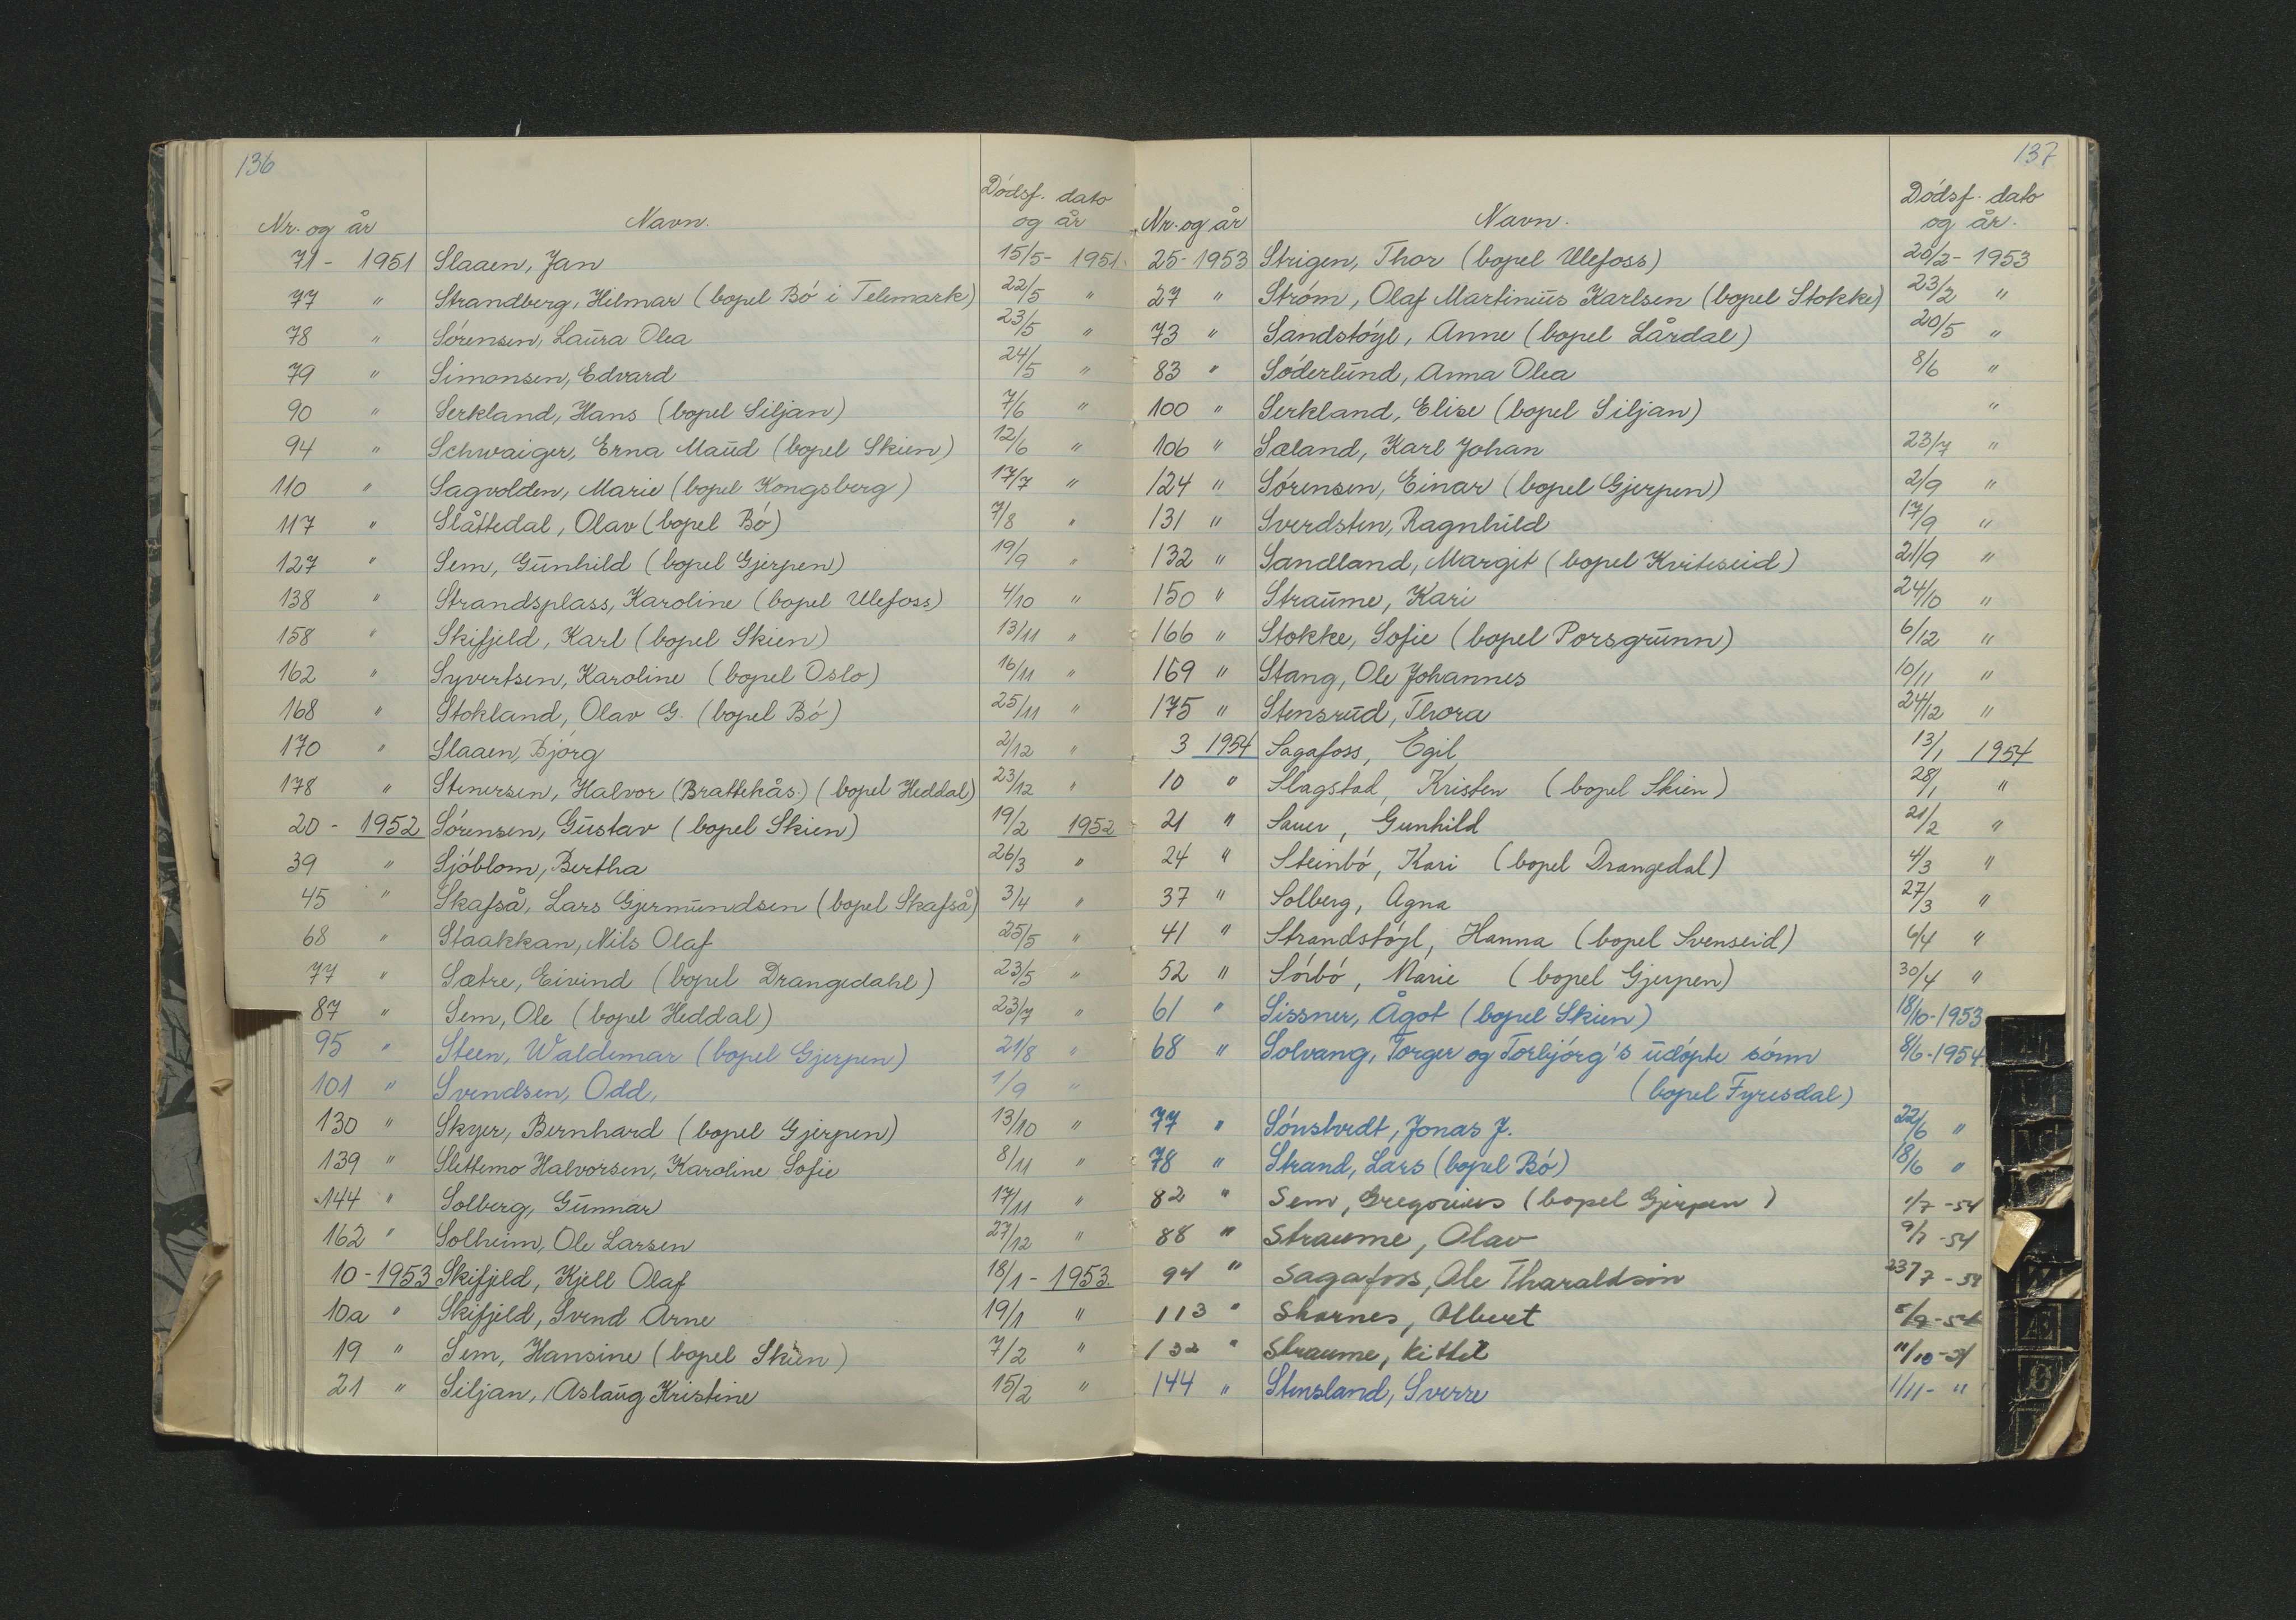 136
Dödsf. dato
Nr. og år Navn. og år
71 - 1951 Slaaen, Jan 15/5 - 1951
77 " Strandberg, Hilmar (bopel Bó i Telemark) 22/5 "
78 " Sórensen, Laura Olea 23/5 "
79 " Simonsen, Edvard 24/5 "
90 " Serkland, Hans (bopel Siljan) 7/6 "
94 " Schwaiger, Erna Maud (bopel Skien) 12/6 "
110 " Sagvolden, Marie (bopel Kongsberg) 17/7 "
117 " Slåttedal, Olav (bopel Bó) 7/8 "
127 " Sem, Gunhild (bopel Gjerpen) 19/9 "
138 " Strandsplass, Karoline (bopel Ulefoss) 4/10 "
158 " Skifjeld, Karl (bopel Skien) 13/11 "
162 " Syvertsen, Karoline (bopel Oslo) 16/11 "
168 " Stokland, Olav G. (bopel Bó) 25/11 "
170 " Slaaen, Bjórg 2/12 "
178 " Stenersen, Halvor (Brattekås.) (bopel Heddal) 23/12 "
20 - 1952 Sórensen, Gustav (bopel Skien) 19/2 1952
39 " Sjóblom, Bertha 26/3 "
45 " Skafså, Lars Gjermundsen (bopel Skafså) 3/4 "
68 " Staakkan, Nils Olaf 25/5 "
77 " Sætre, Eivind (bopel Drangedahl) 23/5 "
87 " Sem, Ole (bopel Heddal) 23/7 "
95 " Steen, Waldemar (bopel Gjerpen) 21/8 "
101 " Svendsen, Odd, 1/9 "
130 " Skyer, Bernhard (bopel Gjerpen) 13/10 "
139 " Slettemo Halvorsen, Karoline Sofie 8/11 "
144 " Solberg, Gunnar 17/11 "
162 " Solheim, Ole Larsen 27/12 "
10 - 1953 Skifjeld, Kjell Olaf 18/1 - 1953.
10a " Skifjeld, Svend Arne 19/1 "
19 " Sem, Hansine (bopel Skien) 7/2 "
21 " Siljan, Aslaug Kristine 15/2 "
137
Dódsf. dato
Nr. og år Navn. og år.
25 - 1953 Strigen, Thor (bopel Ulefoss) 20/2 - 1953
27 " Stróm, Olaf Martinius Karlsen (bopel Stokke) 23/2 "
73 " Sandstóyl, Anne (bopel Lårdal) 20/5 "
83 " Sóderlund, Anna Olea 8/6 "
100 " Serkland, Elise (bopel Siljan) "
106 " Sæland, Karl Johan 23/7 "
124 " Sórensen, Einar (bopel Gjerpen) 2/9 "
131 " Sverdsten, Ragnhild 17/9 "
132 " Sandland, Margit (bopel Kviteseid) 21/9 "
150 " Straume, Kari 24/10 "
166 " Stokke, Sofie (bopel Porsgrunn) 6/12 "
169 " Stang, Ole Johannes 10/11 "
175 " Stensrud, Thora 24/12 "
3 1954 Sagafoss, Egil 13/1 1954
10 " Slagstad, Kristen (bopel Skien) 28/1 "
21 " Sauer, Gunhild 21/2 "
24 " Steinbó, Kari (bopel Drangedal) 4/3 "
37 " Solberg, Agna 27/3 "
41 " Strandstóyl, Hanna (bopel Svenseid) 6/4 "
52 " Sórbó, Marie (bopel Gjerpen) 30/4 "
61 " Sissner, Ågot (bopel Skien) 18/10 - 1953
68 " Solvang, Torger og Torbjórg's udópte sónn 8/6 - 1954.
(bopel Fyresdal)
77 " Jonas J. 22/6 "
78 " Strand, Lars (bopel Bó) 18/6 "
82 " Sem, Gregorius (bopel Gjerpen) 1/7 - 54
88 " Straume, Olav 9/7 - 54
94 " Sagafoss, Ole Tharaldsen 23/7 - 54
113 " Skarnes, Albert 5/9 - 54
132 " Straume, Kittel 11/10 - 54
144 " Stensland, Sverre 1/11 - "
Æ
Ø